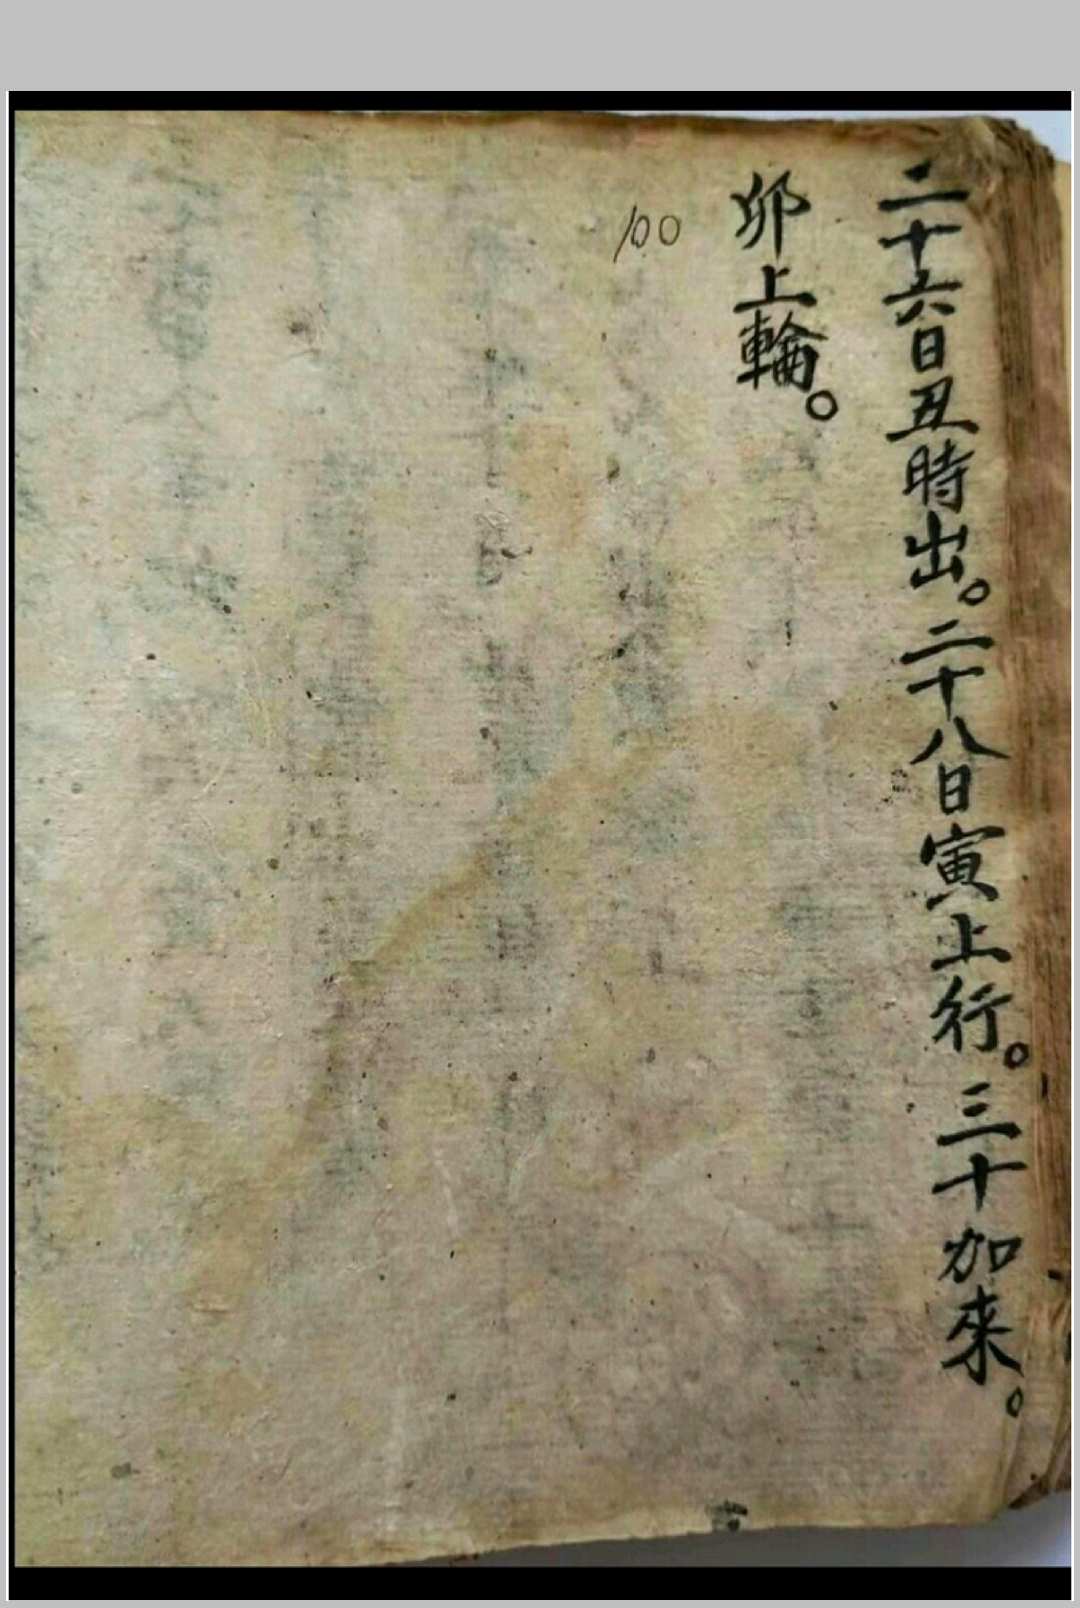 二十六日丑時出。二十八日寅上行。三十加來。
卯上輪。
100